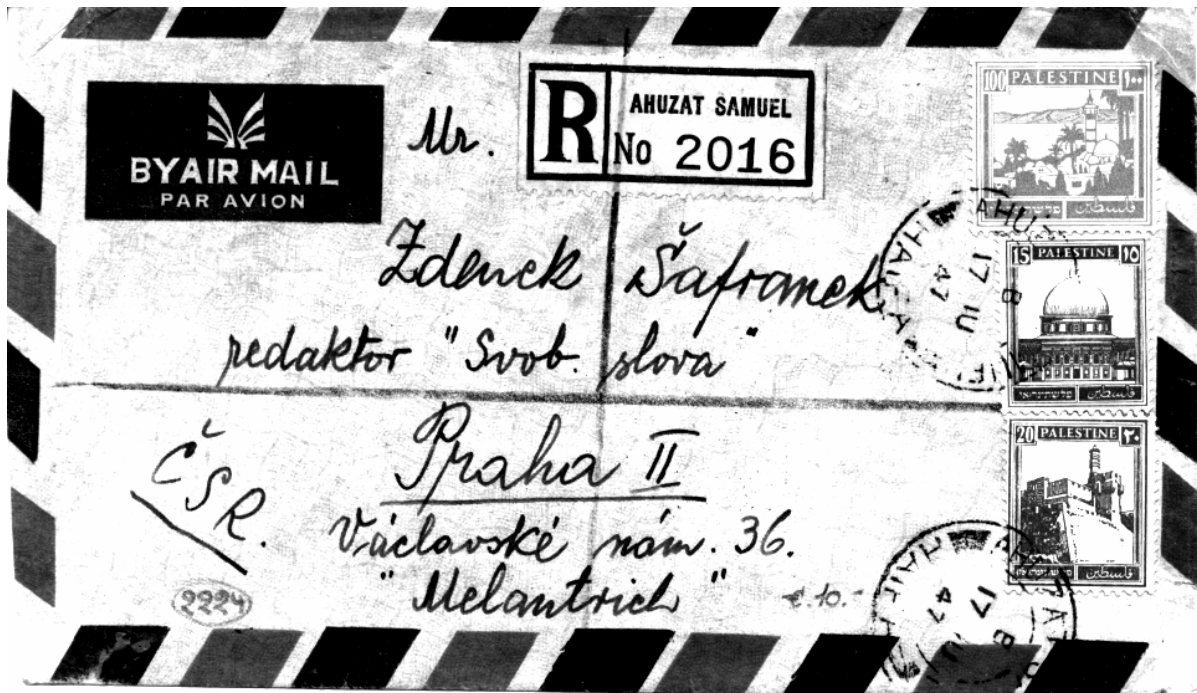 BY AIR MAIL
PAR AVION
R
AHUZAT SAMUEL
No 2016
Mr.
Zdenek Šafranek
redaktor "Svob. slova"
Praha II
Václavské nám. 36.
"Melantrich"
ČSR.
2224
100 PALESTINE ١٠٠
فلسطين
15 PALESTINE ١٥
فلسطين
20 PALESTINE ٢٠
فلسطين
17 IV
47
17
47